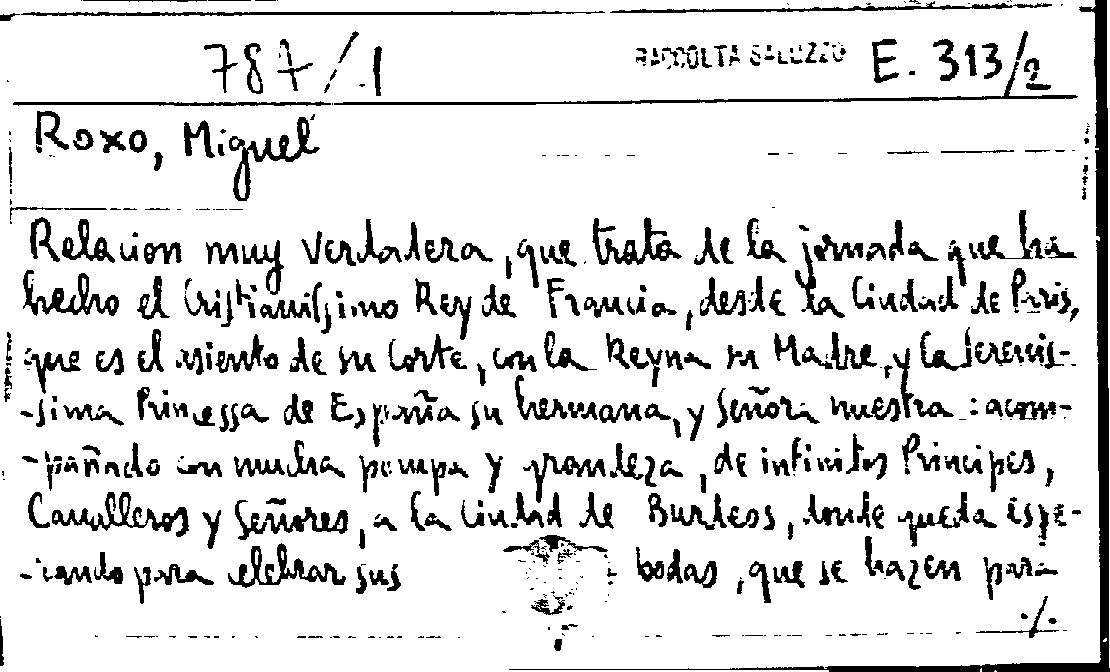 787/1 RACCOLTA SALUZZO E. 313/2
Roxo, Miguel
Relacion muy verdadera, que trata de la jornada que ha
hecho el Cristianissimo Rey de Francia, desde la Ciudad de Paris,
que es el asiento de su Corte, con la Reyna su Madre, y la Serenis-
-sima Princessa de España su hermana, y Señora nuestra: acom-
-pañado con mucha pompa y grandeza, de infinitos Principes,
Cavalleros y Señores, a la Ciudad de Burdeos, donde queda espe-
-rando para celebrar sus bodas, que se hazen para
./.